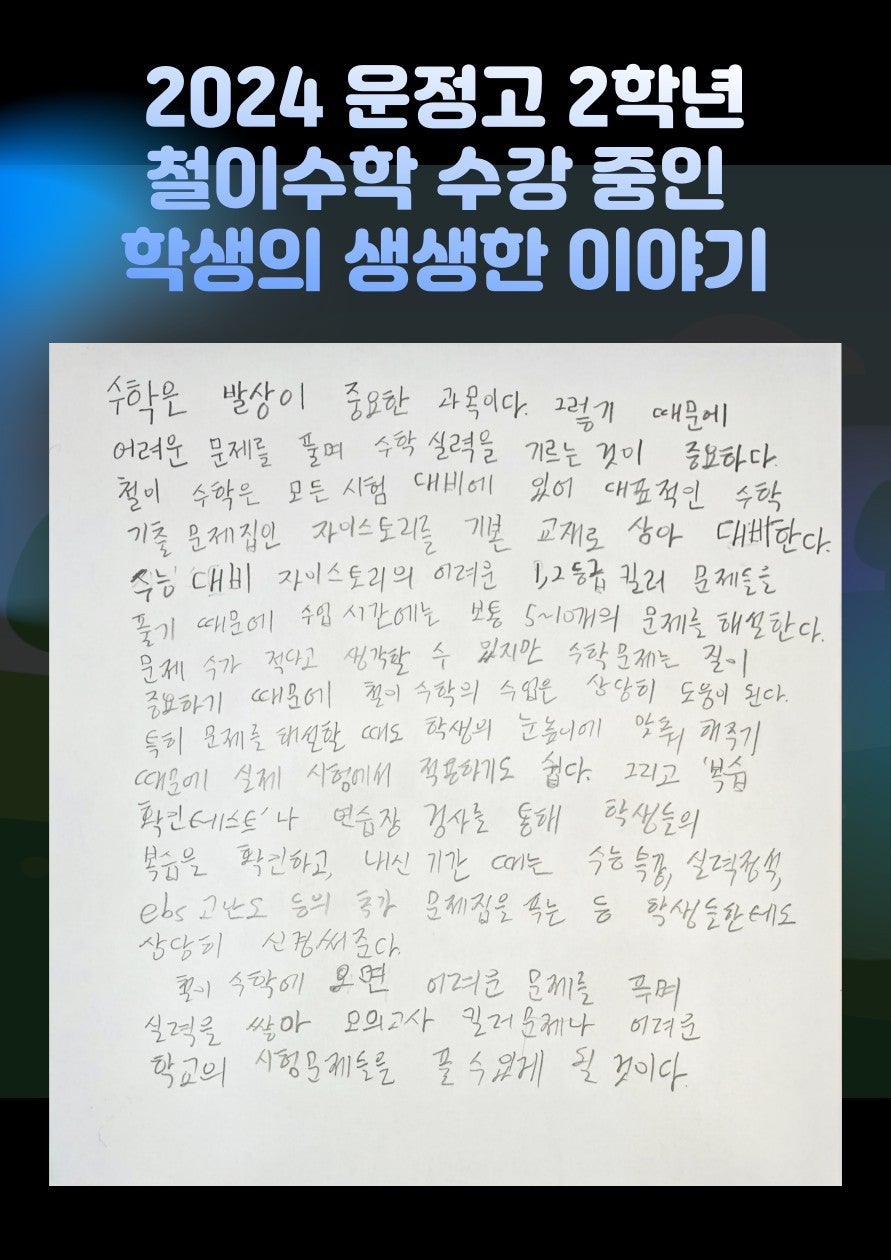 2024 운정고 2학년
철이수학 수강 중인
학생의 생생한 이야기
수학은 발상이 중요한 과목이다. 그렇기 때문에
어려운 문제를 풀며 수학 실력을 기르는 것이 중요하다.
철이 수학은 모든 시험 대비에 있어 대표적인 수학
기출 문제집인 자이스토리를 기본 교재로 삼아 대비한다.
수능 대비 자이스토리의 어려운 1,2등급 킬러 문제들을
풀기 때문에 수업 시간에는 보통 5~10개의 문제를 해설한다.
문제 수가 적다고 생각할 수 있지만 수학문제는 질이
중요하기 때문에 철이 수학의 수업은 상당히 도움이 된다.
특히 문제를 해설할 때도 학생의 눈높이에 맞춰 해주기
때문에 실제 시험에서 적용하기도 쉽다. 그리고 '복습
확인테스트'나 연습장 검사를 통해 학생들의
복습을 확인하고, 내신 기간 때는 수능특강, 실력정석,
ebs 고난도 등의 추가 문제집을 푸는 등 학생들한테도
상당히 신경써준다.
철이 수학에 오면 어려운 문제를 푸며
실력을 쌓아 모의고사 킬러문제나 어려운
학교의 시험문제들을 풀 수 있게 될 것이다.